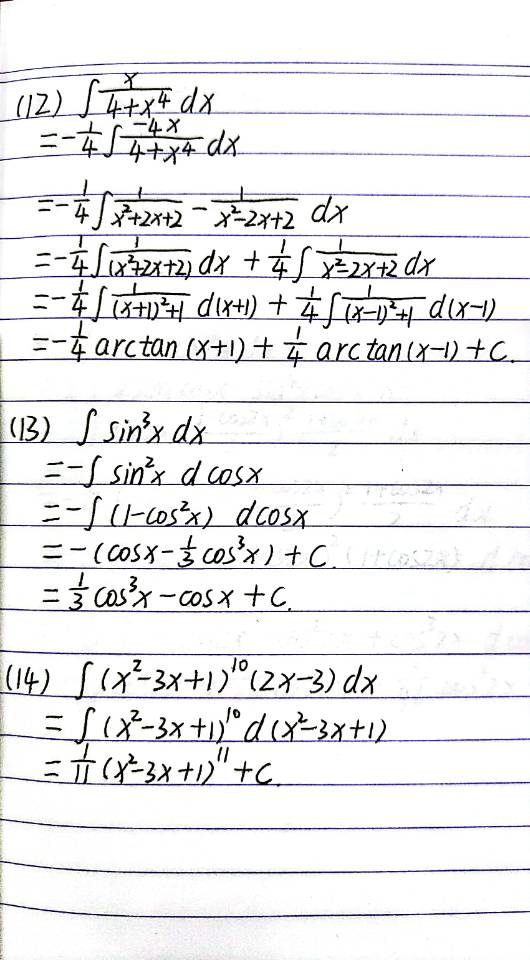 (12) ∫ x/(4+x⁴) dx
= -1/4 ∫ -4x/(4+x⁴) dx
= -1/4 ∫ 1/(x²+2x+2) - 1/(x²-2x+2) dx
= -1/4 ∫ 1/(x²+2x+2) dx + 1/4 ∫ 1/(x²-2x+2) dx
= -1/4 ∫ 1/((x+1)²+1) d(x+1) + 1/4 ∫ 1/((x-1)²+1) d(x-1)
= -1/4 arctan (x+1) + 1/4 arctan(x-1) + C.
(13) ∫ sin³x dx
= -∫ sin²x d cosx
= -∫ (1-cos²x) dcosx
= -(cosx - 1/3 cos³x) + C.
= 1/3 cos³x - cosx + C.
(14) ∫ (x²-3x+1)¹⁰ (2x-3) dx
= ∫ (x²-3x+1)¹⁰ d (x²-3x+1)
= 1/11 (x²-3x+1)¹¹ + C.